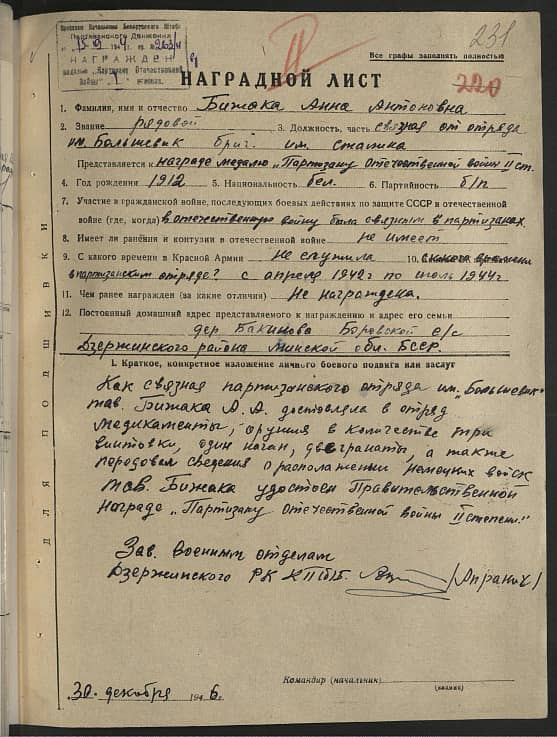 231
Приказом Начальника Белорусского Штаба
Партизанского Движения
НАГРАЖДЕН
медалью "Партизану Отечественной
Войны" степени.
II
Все графы заполнять полностью
НАГРАДНОЙ ЛИСТ
220
1. Фамилия, имя и отчество Бижака Анна Антоновна
2. Звание рядовой 3. Должность, часть связная от отряда
им. Большевик бриг. им. Сталина
Представляется к награде медалю „Партизану Отечественной войны II ст.
4. Год рождения 1912 5. Национальность бел. 6. Партийность б/п
7. Участие в гражданской войне, последующих боевых действиях по защите СССР и отечественной
войне (где, когда) в отечественную войну была связным в партизанах.
8. Имеет ли ранения и контузии в отечественной войне не имеет
9. С какого времени в Красной Армии не служила 10. С какого времени
в партизанском отряде? с апреля 1942 г по июль 1944 г
11. Чем ранее награжден (за какие отличия) Не награждена.
12. Постоянный домашний адрес представляемого к награждению и адрес его семьи
дер. Бакинова Боровской с/с
Дзержинского района Минской обл. БССР.
I. Краткое, конкретное изложение личного боевого подвига или заслуг
Как связная партизанского отряда им. „Большевик"
тов. Бижака А. А. доставляла в отряд
медикаменты, оружия в количестве три
винтовки, один наган, две гранаты, а также
передовал сведения о расположении немецких войск
тов. Бижака удостоен Правительственной
Награде „Партизану Отечественной войны II степени."
Зав. Военным отделам
Дзержинского РК КП(б)Б. /Апранич/
Командир (начальник)
(подпись)
30. декабря 1946 г.
ДЛЯ ПОДШИВКИ